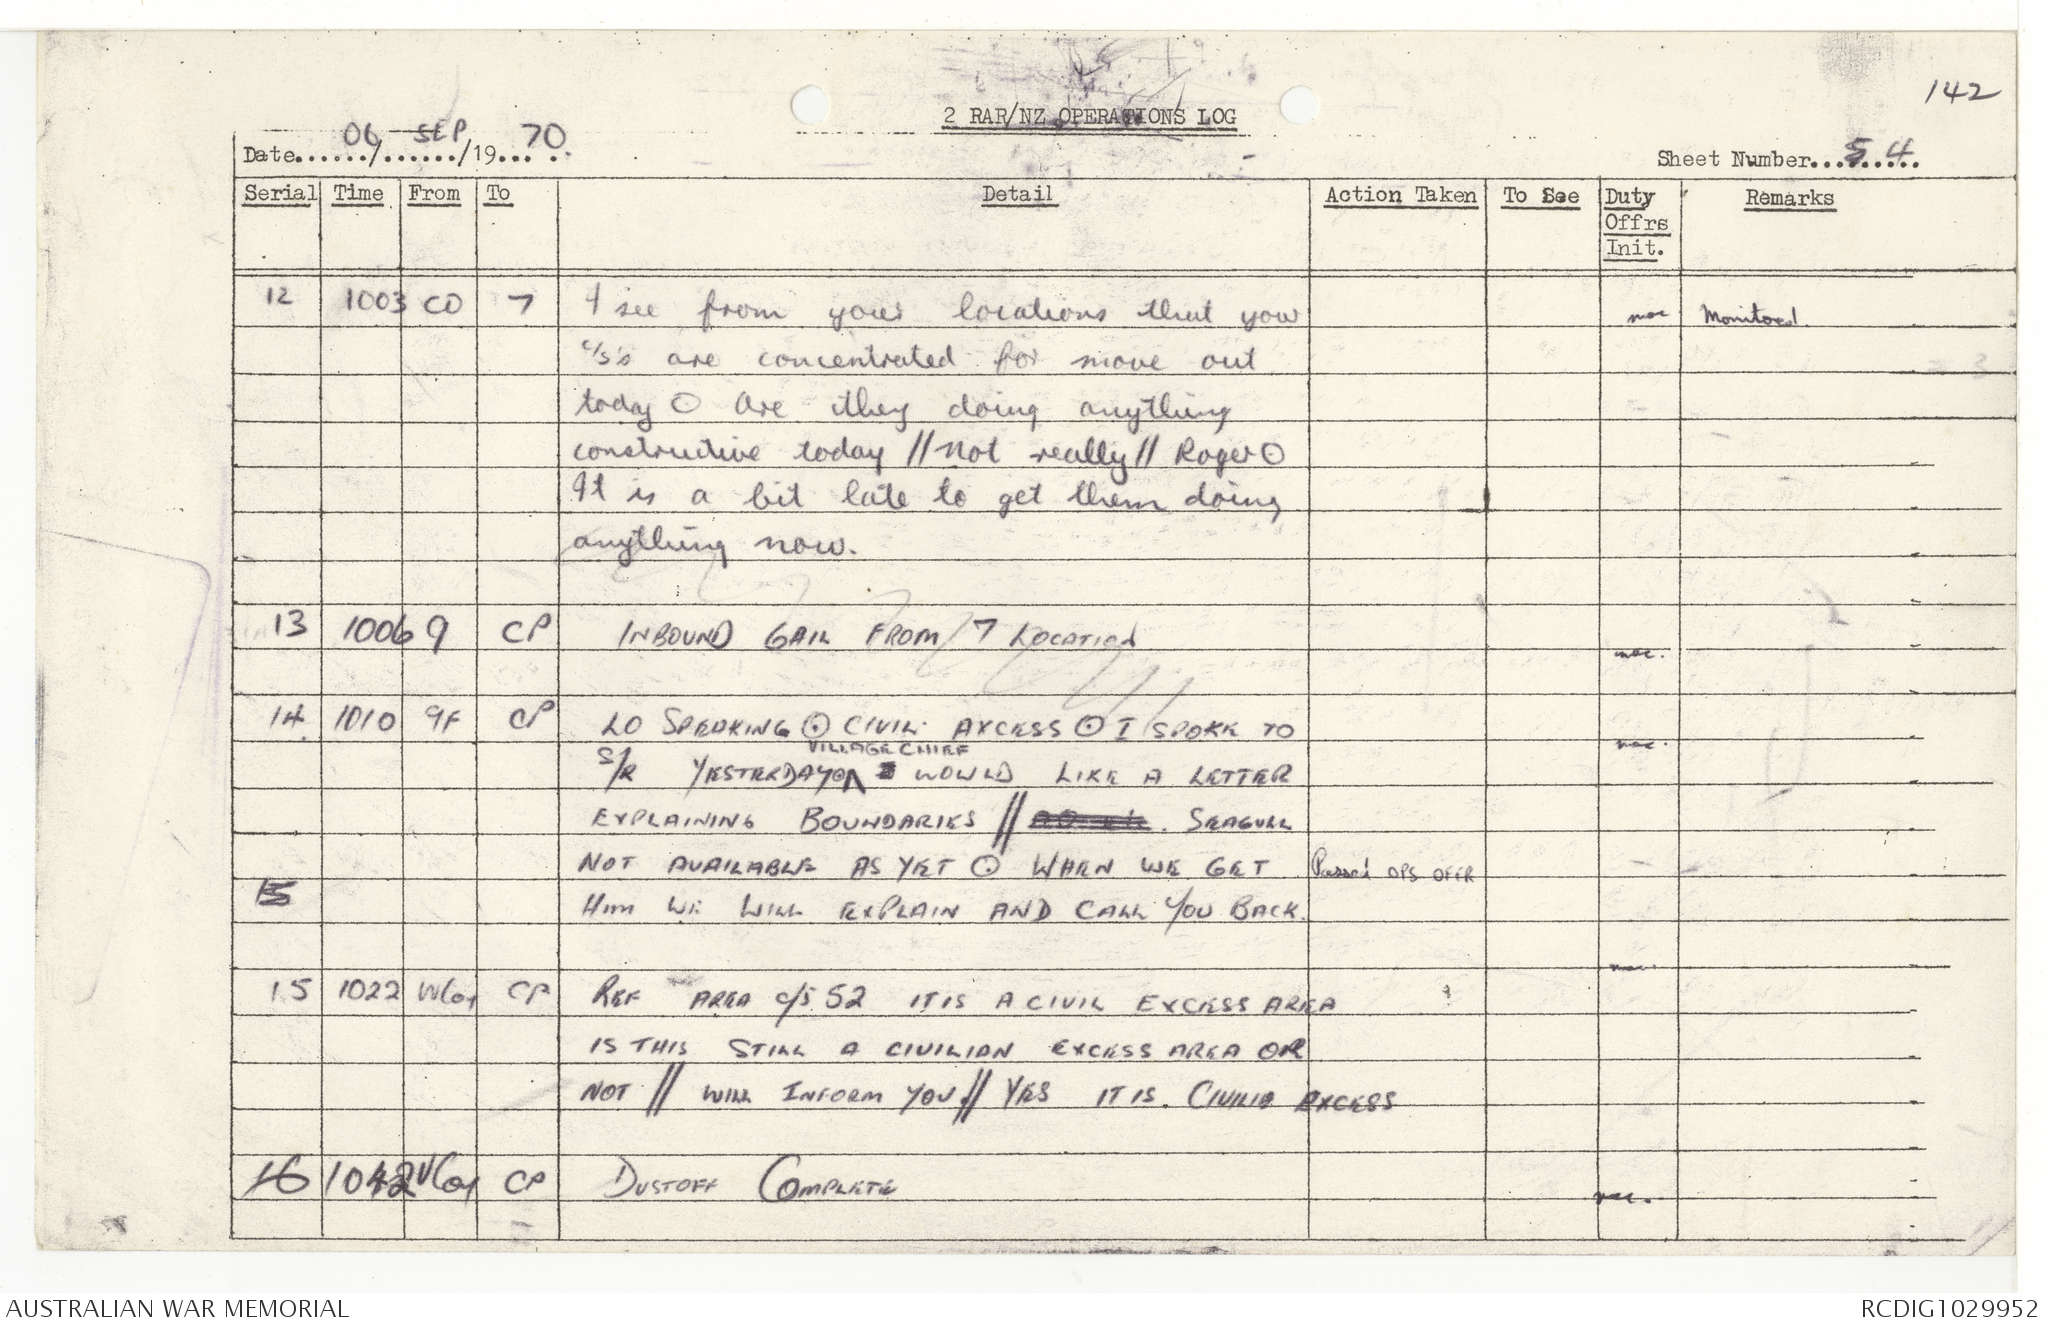 142
2 RAR/NZ OPERATIONS LOG
Date 06/SEP/1970.
Sheet Number 54
Serial Time From To Detail Action Taken To See Duty Offrs Init. Remarks
12 1003 CO 7 I see from your locations that your Monitored.
c/s's are concentrated for move out
today ⊙ Are they doing anything
constructive today // Not really // Roger ⊙
It is a bit late to get them doing
anything now.
13 1006 9 CP INBOUND GAIL FROM 7 LOCATION
14 1010 9F CP LO SPEAKING ⊙ CIVIL AXCESS ⊙ I SPOKE TO
VILLAGE CHIEF
S/R YESTERDAY ⊙ WOULD LIKE A LETTER
EXPLAINING BOUNDARIES // SEAGULL
NOT AVAILABLE AS YET ⊙ WHEN WE GET Passed OPS OFFR
15
HIM WE WILL EXPLAIN AND CALL YOU BACK.
15 1022 WCoy CP REF AREA c/s 52 IT IS A CIVIL EXCESS AREA
IS THIS STILL A CIVILIAN EXCESS AREA OR
NOT // WILL INFORM YOU // YES IT IS. EXCESS
16 1042 VCoy CP DUSTOFF COMPLETE
AUSTRALIAN WAR MEMORIAL
RCDIG1029952